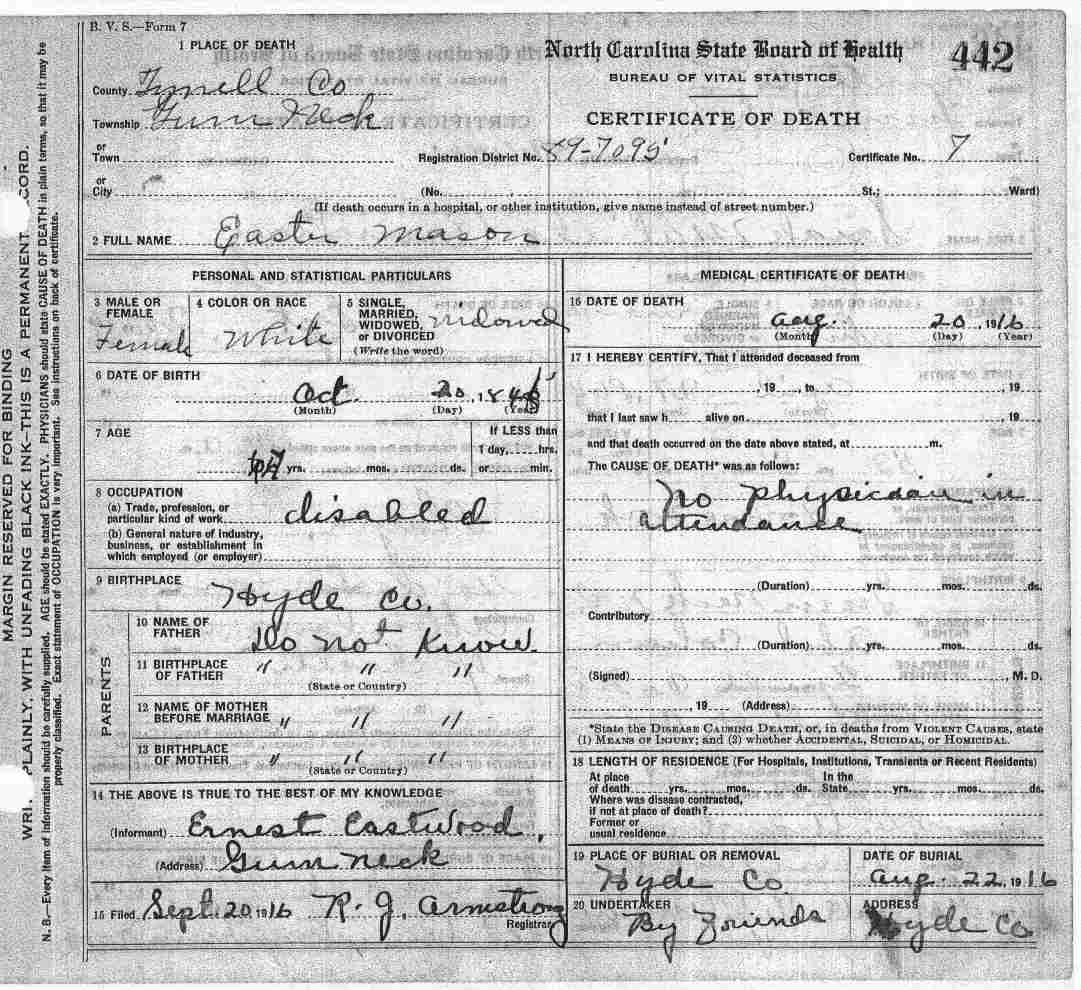 B. V. S.—Form 7
1 PLACE OF DEATH
North Carolina State Board of Health
442
BUREAU OF VITAL STATISTICS
CERTIFICATE OF DEATH
County Tyrrell Co
Township Gum Neck
or
Town
Registration District No. 89-7095
Certificate No. 7
or
City (No. St.; Ward)
(If death occurs in a hospital, or other institution, give name instead of street number.)
2 FULL NAME Easter Mason
PERSONAL AND STATISTICAL PARTICULARS
3 MALE OR FEMALE
Female
4 COLOR OR RACE
White
5 SINGLE, MARRIED, WIDOWED, OR DIVORCED
(Write the word)
Widowed
6 DATE OF BIRTH
Oct. 20, 184
(Month) (Day) (Year)
7 AGE
yrs. mos. ds.
If LESS than
1 day, hrs.
or min.
8 OCCUPATION
(a) Trade, profession, or
particular kind of work disabled
(b) General nature of industry,
business, or establishment in
which employed (or employer)
9 BIRTHPLACE
Hyde Co.
PARENTS
10 NAME OF FATHER
Do not Know.
11 BIRTHPLACE OF FATHER " " "
(State or Country)
12 NAME OF MOTHER BEFORE MARRIAGE " " "
13 BIRTHPLACE OF MOTHER " " "
(State or Country)
14 THE ABOVE IS TRUE TO THE BEST OF MY KNOWLEDGE
(Informant) Ernest Eastwood,
(Address) Gum Neck
15 Filed Sept. 20 1916 R. J. Armstrong
Registrar
MEDICAL CERTIFICATE OF DEATH
16 DATE OF DEATH
Aug. 20, 1916
(Month) (Day) (Year)
17 I HEREBY CERTIFY, That I attended deceased from
, 19 , to , 19
that I last saw h alive on , 19
and that death occurred on the date above stated, at m.
The CAUSE OF DEATH* was as follows:
No physician in
attendance
(Duration) yrs. mos. ds.
Contributory
(Duration) yrs. mos. ds.
(Signed) , M. D.
19 (Address)
*State the DISEASE CAUSING DEATH, or, in deaths from VIOLENT CAUSES, state
(1) MEANS OF INJURY; and (2) whether ACCIDENTAL, SUICIDAL, or HOMICIDAL.
18 LENGTH OF RESIDENCE (For Hospitals, Institutions, Transients or Recent Residents)
At place In the
of death yrs. mos. ds. State yrs. mos. ds.
Where was disease contracted,
if not at place of death?
Former or
usual residence
19 PLACE OF BURIAL OR REMOVAL
Hyde Co
DATE OF BURIAL
Aug. 22, 1916
20 UNDERTAKER
By Friends
ADDRESS
Hyde Co
MARGIN RESERVED FOR BINDING
PLAINLY, WITH UNFADING BLACK INK—THIS IS A PERMANENT
N. B.—Every item of information should be carefully supplied. AGE should be stated EXACTLY. PHYSICIANS should state CAUSE OF DEATH in plain terms, so that it may be
properly classified. Exact statement of OCCUPATION is very important. See instructions on back of certificate.